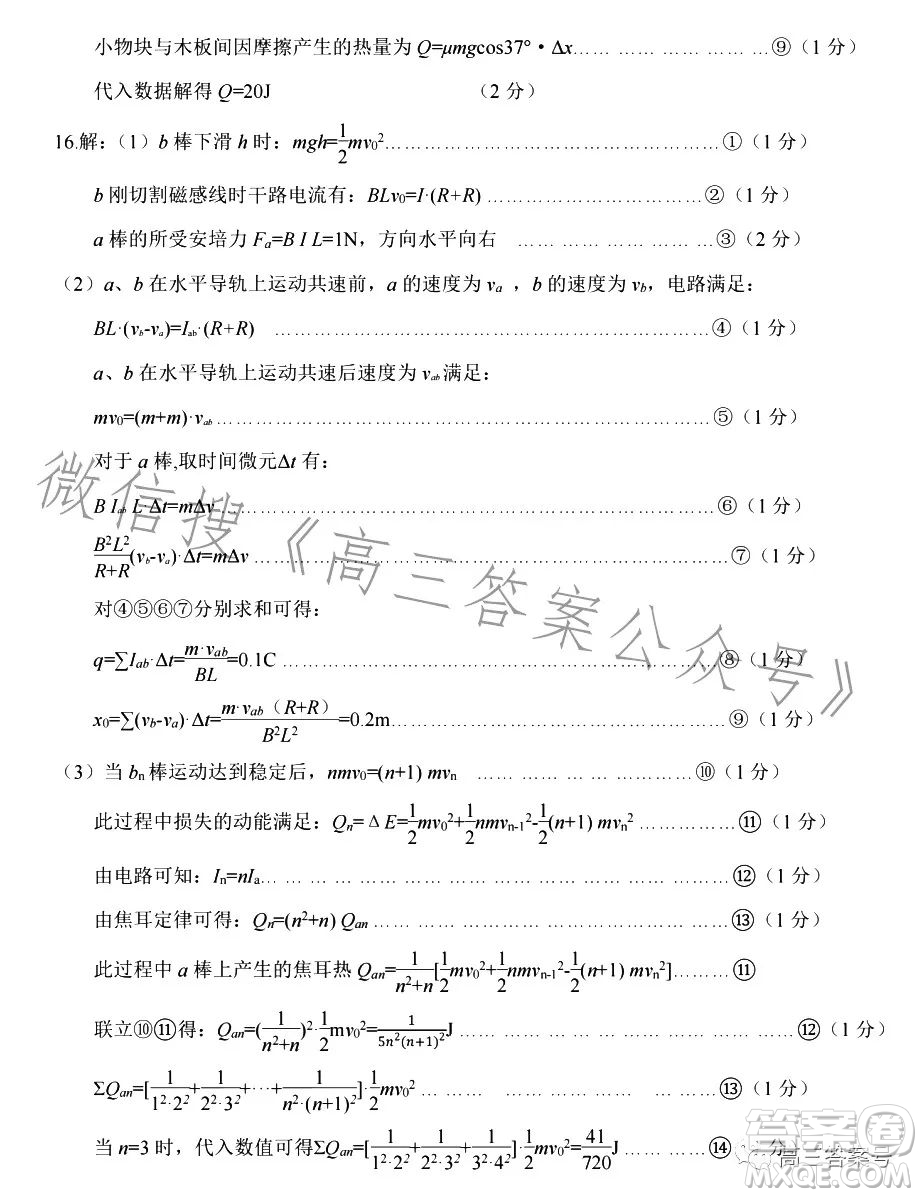 小物块与木板间因摩擦产生的热量为 Q=μmgcos37°·Δx…… …… …… ……⑨（1 分）
代入数据解得 Q=20J （2 分）
16.解：（1）b 棒下滑 h 时：mgh=\frac{1}{2}mv₀²……………………………………………①（1 分）
b 刚切割磁感线时干路电流有：BLv₀=I·(R+R) ……………………………②（1 分）
a 棒的所受安培力 Fₐ=B I L=1N，方向水平向右 …… …… …… ……③（2 分）
（2）a、b 在水平导轨上运动共速前，a 的速度为 vₐ ，b 的速度为 v_b，电路满足：
BL·(v_b-v_a)=I_{ab}·(R+R) ………………………………………………………④（1 分）
a、b 在水平导轨上运动共速后速度为 v_{ab}满足：
mv₀=(m+m)·v_{ab}…………………………………………………………………⑤（1 分）
对于 a 棒,取时间微元Δt 有：
B I_{ab} L·Δt=mΔv …………………………………………………………………⑥（1 分）
\frac{B²L²}{R+R}(v_b-v_a)·Δt=mΔv ……………………………………………………………⑦（1 分）
对④⑤⑥⑦分别求和可得：
q=∑I_{ab}·Δt=\frac{m·v_{ab}}{BL}=0.1C ………………………………………………………⑧（1 分）
x₀=∑(v_b-v_a)·Δt=\frac{m·v_{ab}（R+R）}{B²L²}=0.2m…………………………………………⑨（1 分）
（3）当 b_n 棒运动达到稳定后，nmv₀=(n+1) mv_n ……………………………⑩（1 分）
此过程中损失的动能满足：Q_n= ΔE=\frac{1}{2}mv₀²+\frac{1}{2}nmv_{n-1}²-\frac{1}{2}(n+1) mv_n² ……………⑪（1 分）
由电路可知：I_n=nI_a… … … …… …… …… …… …… …… ……⑫（1 分）
由焦耳定律可得：Q_n=(n²+n) Q_{an} …… …… …… …… …… ……⑬（1 分）
此过程中 a 棒上产生的焦耳热 Q_{an}=\frac{1}{n²+n}[\frac{1}{2}mv₀²+\frac{1}{2}nmv_{n-1}²-\frac{1}{2}(n+1) mv_n²]………⑪
联立⑩⑪得：Q_{an}=(\frac{1}{n²+n})²·\frac{1}{2}mv₀²=\frac{1}{5n²(n+1)²}J …… …… …… …… …… ……⑫（1 分）
ΣQ_{an}=[\frac{1}{1²·2²}+\frac{1}{2²·3²}+···+\frac{1}{n²·(n+1)²}]·\frac{1}{2}mv₀² …… …… …… …… ……⑬（1 分）
当 n=3 时，代入数值可得ΣQ_{an}=[\frac{1}{1²·2²}+\frac{1}{2²·3²}+\frac{1}{3²·4²}]·\frac{1}{2}mv₀²=\frac{41}{720}J …… ……⑭ 分
微信搜《高三答案公众号》
高三答案号
答案圈